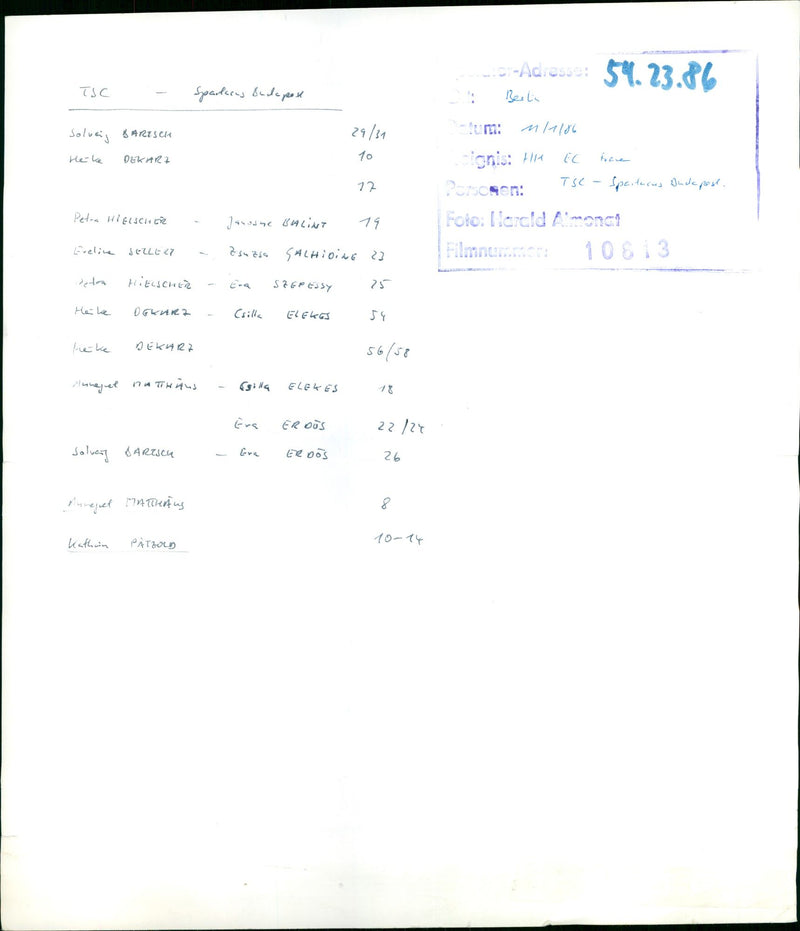 TSC — Spartacus Budapest
Solveig BARTSCH 29/31
Heike DEKARZ 10
17
Petra HIELSCHER - BALINT 19
Eveline SELLERT - Zsuzsa 23
Petra HIELSCHER - Eva SZEPESSY 25
Heike DEKARZ - Csilla ELEKES 54
Heike DEKARZ 56/58
Annegret MATTHÄUS - Csilla ELEKES 18
Eva ERDÖS 22/24
Solveig BARTSCH - Eva ERDÖS 26
Annegret MATTHÄUS 8
Kathrin PÄTZOLD 10-14
-Adresse: 54.23.86
Ort: Berlin
Datum: 11/1/86
Ereignis: HH EC Frauen
Personen: TSC - Spartacus Budapest.
Foto: Harald Almonat
Filmnummer: 10813